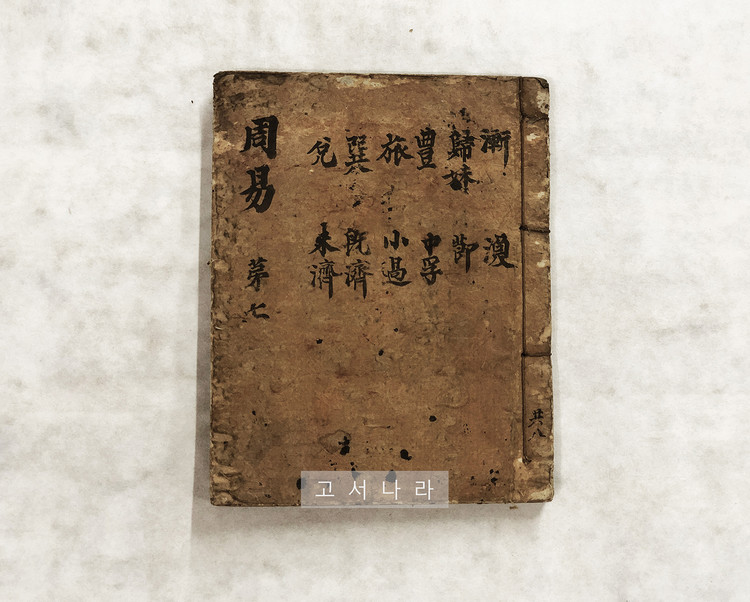 周易 苐七
漸
歸妹
豊
旅
巽
兌
渙
節
中孚
小過
既濟
未濟
共八
고서나라